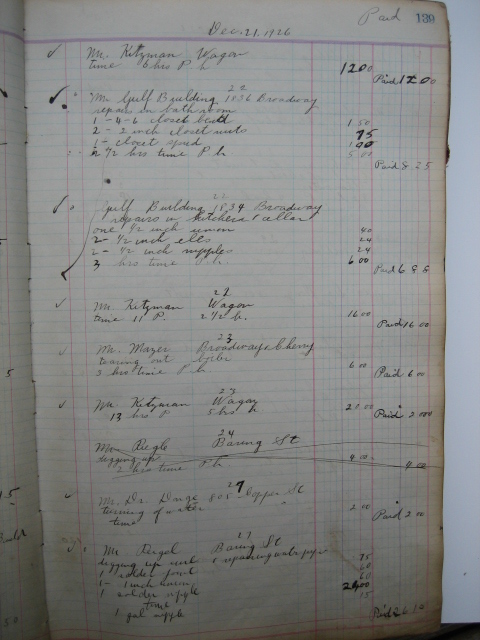 Paid 139
Dec. 21, 1926
Mr. Kitzman Wagon
time 6 hrs P h 12 00
Paid 12 00
22
Mr. Gulf Building 1836 Broadway
repair in bathroom
1 - 4-6 closet bend 1 50
2 - 2 inch closet nuts 75
1 - closet spud 1 00
2 1/2 hrs time P h. 5 00
Paid 8 25
22
Gulf Building 1834 Broadway
repairs in kitchen & cellar
one 1/2 inch union 40
2 - 1/2 inch ells 24
2 - 1/2 inch nipples 24
3 hrs time 6 00
Paid 6 88
22
Mr. Kitzman Wagon
time 11 P. 2 1/2 h. 16 00
Paid 16 00
23
Mr. Mazer Broadway & Cherry
tearing out
3 hrs time P h 6 00
Paid 6 00
23
Mr. Kitzman Wagon
13 hrs P 5 hrs h 20 00
Paid 20 00
24
Mr. Riegle Baring St
digging up
2 hrs time P h. 4 00
4 00
27
Mr. Dr. 805 St
turning of water 2 00
time
Paid 2 00
27
Mr Riegel Baring St
digging up and repairing water pipe 75
1 solder joint 60
1 - 1 inch union 60
1 solder nipple 24 00
time 15
1 gal nipple
Paid 26 10